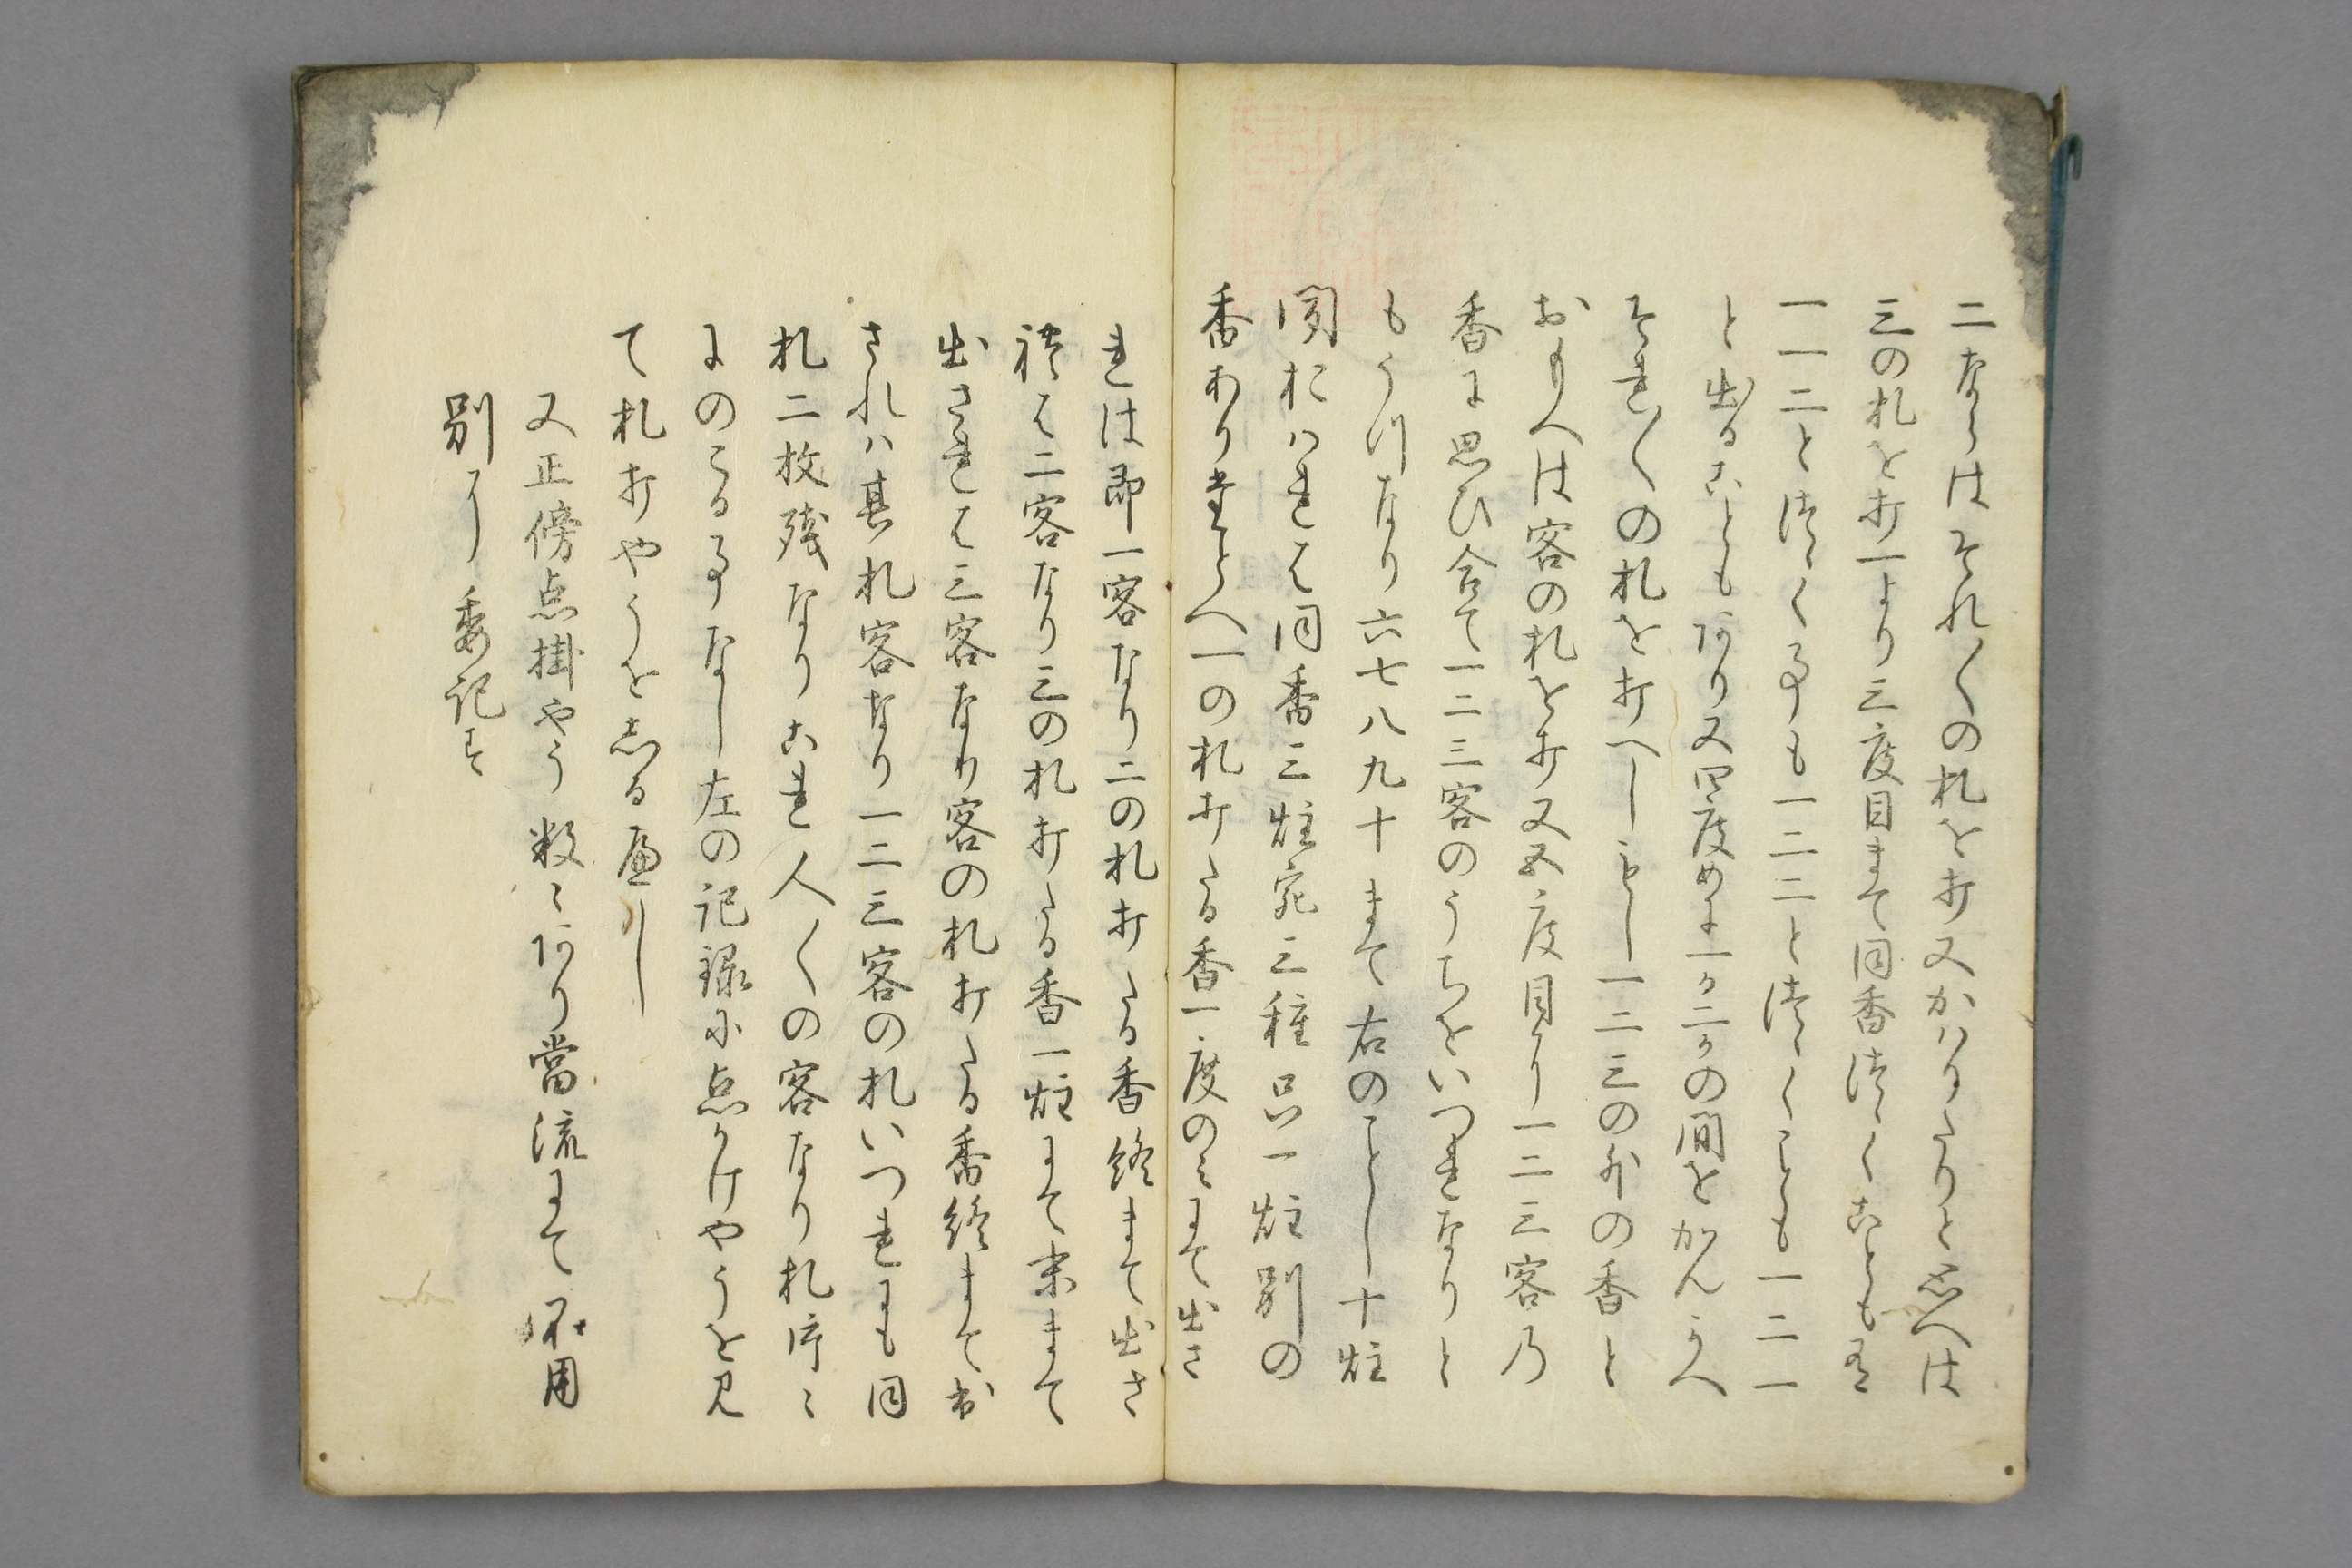 二ならはそれ〳〵の札を打又かハりたりと思へは
三の札を打一より三度目まて同香つゝくこともあり
一一二とつゝく事も一二二とつゝくことも一二一
と出ることもあり又四度めに一か二かの間をかんかへ
それ〳〵の札を打へしもし一二三の外の香と
おもへは客の札を打又五度目より一二三客乃
香に思ひ合て一二三客のうちをいつれなりと
もうつなり六七八九十まて右のことし十炷
聞おハれは同香三炷宛三種只一炷別の
香ありたとへ一の札打たる香一度のミにて出さ
れは即一客なり二の札打たる香終まて出さ
れは二客なり三の札打たる香一炷にて末まて
出されは三客なり客の札打たる香終まて出
されハ其札客なり一二三客の札いつれにも同
札二枚残なりこれ人〳〵の客なり札序〻
にのこる事なし左の記録に点かけやうを見
て札打やうをしるへし
又正傍点掛やう数〻あり當流にて不用
別り委記す